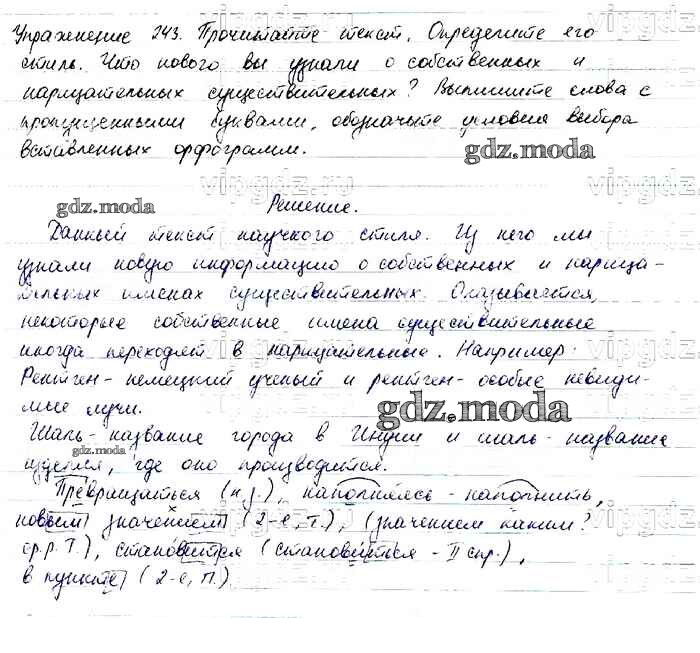 Упражнение 243. Прочитайте текст. Определите его
стиль. Что нового вы узнали о собственных и
нарицательных существительных? Выпишите слова с
пропущенными буквами, обозначьте условия выбора
вставленных орфограмм.
gdz.moda
vipgdz.ru
gdz.moda
Решение.
Данный текст научного стиля. Из него мы
узнали новую информацию о собственных и нарица-
тельных именах существительных. Оказывается,
некоторые собственные имена существительные
иногда переходят в нарицательные. Например:
Рентген - немецкий ученый и рентген - особые невиди-
мые лучи.
gdz.moda
Шаль - название города в Индии и шаль - название
изделия, где оно производится.
gdz.moda
Превращаться (н.д.), наполнялась - наполнить,
новым значением (2-е, т.), (значением каким?
ср.р. Т.), становится (становиться - II спр.),
в пункте (2-е, П.)